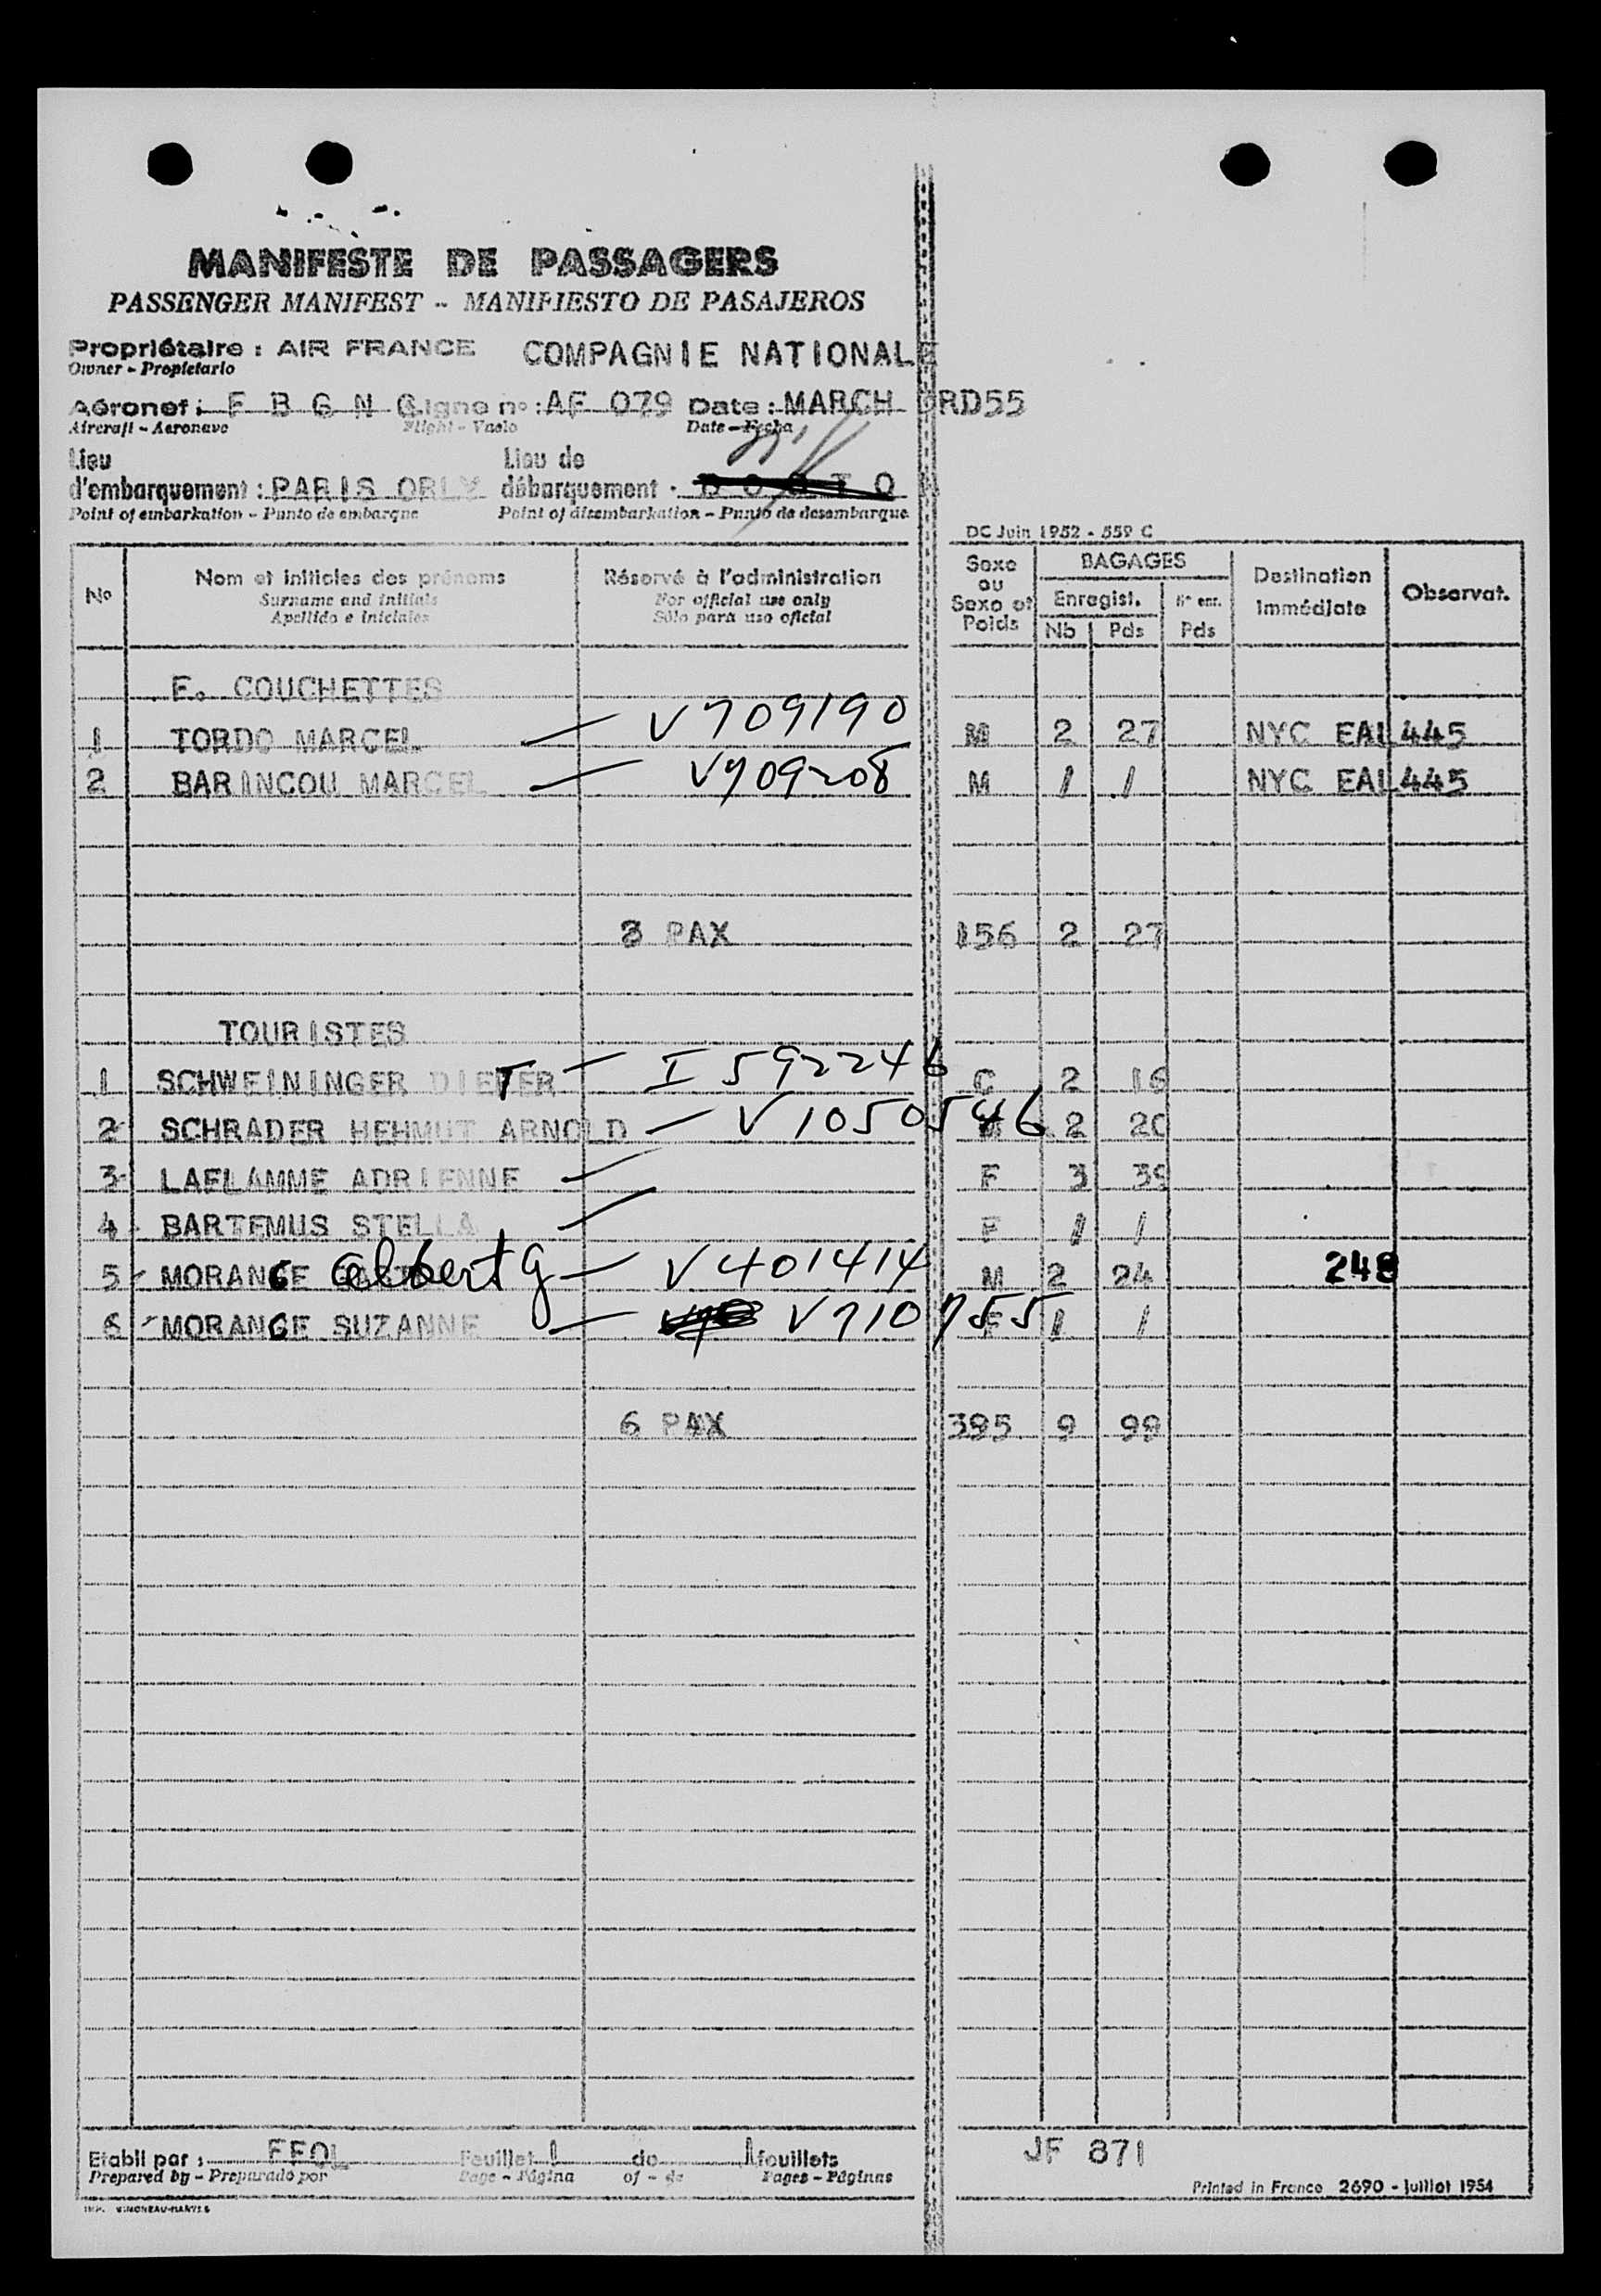 MANIFESTE DE PASSAGERS
PASSENGER MANIFEST - MANIFIESTO DE PASAJEROS
Propriétaire : AIR FRANCE COMPAGNIE NATIONALE
Owner - Propietario
Aéronef : F B G N G Ligne n° : AF 079 Date : MARCH 3RD55
Aircraft - Aeronave Flight - Vuelo Date - Fecha
Lieu Lieu de
d'embarquement : PARIS ORLY débarquement :
Point of embarkation - Punto de embarque Point of disembarkation - Punto de desembarque
DC Juin 1952 - 559 C
N° Nom et initiales des prénoms Réservé à l'administration Sexe ou Sexe et Poids BAGAGES Destination immédiate Observat.
Surname and initials For official use only Enregist. N° enr.
Apellido e iniciales Sólo para uso oficial Nb Pds Pds
F. COUCHETTES
1 TORDO MARCEL — V709190 M 2 27 NYC EAL445
2 BARINCOU MARCEL — V709208 M / / NYC EAL445
PAX 156 2 27
TOURISTES
1 SCHWEININGER DIETER — I 592246 C 2 16
2 SCHRADER HEHMUT ARNOLD — V1050546 2 20
3 LAFLAMME ADRIENNE — F 3 39
4 BARTEMUS STELLA — F / /
5 MORANGE Albert G — V401414 M 2 24 248
6 MORANGE SUZANNE — V710755 F / /
6 PAX 395 9 99
Etabli par : FFOL Feuillet 1 de 1 feuillets JF 871
Prepared by - Preparado por Page - Página of - de Pages - Páginas
Printed in France 2690 - Juillet 1954